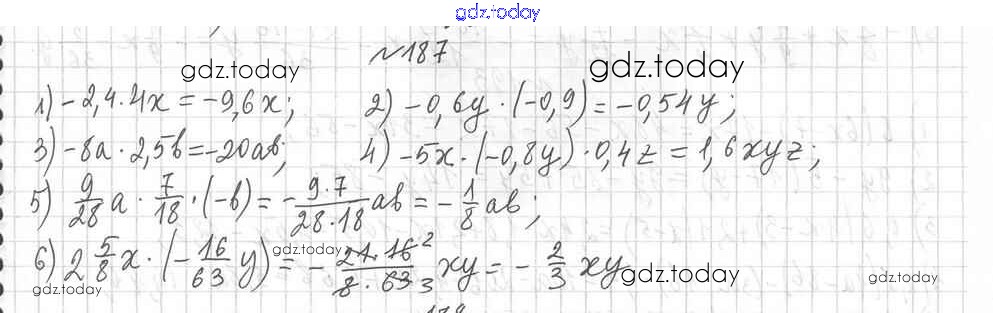 gdz.today
№187
gdz.today gdz.today
1) -2,4·4x = -9,6x; 2) -0,6y · (-0,9) = -0,54y;
3) -8a · 2,5b = -20ab; 4) -5x · (-0,8y) · 0,4z = 1,6xyz;
5) 9/28 a · 7/18 · (-b) = - 9·7/28·18 ab = - 1/8 ab;
6) 2 5/8 x · (- 16/63 y) = - 21·16 2/8·63 3 xy = - 2/3 xy
gdz.today gdz.today gdz.today gdz.today